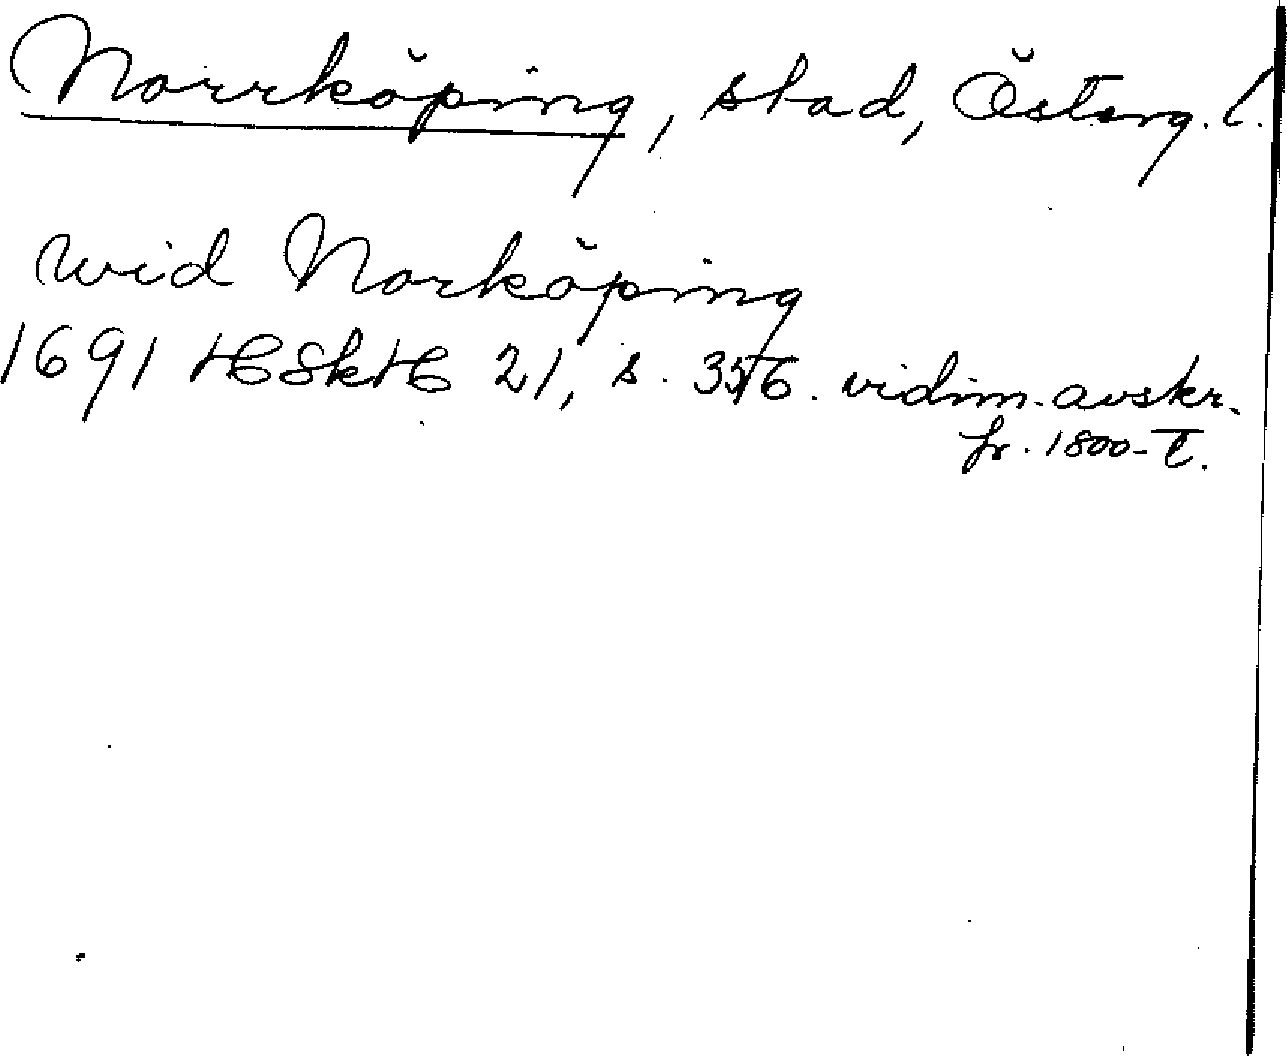 Norrköping, stad, Österg. l.
wid Norköping
1691 HSkH 21, s. 356. vidim. avskr.
fr. 1800-t.